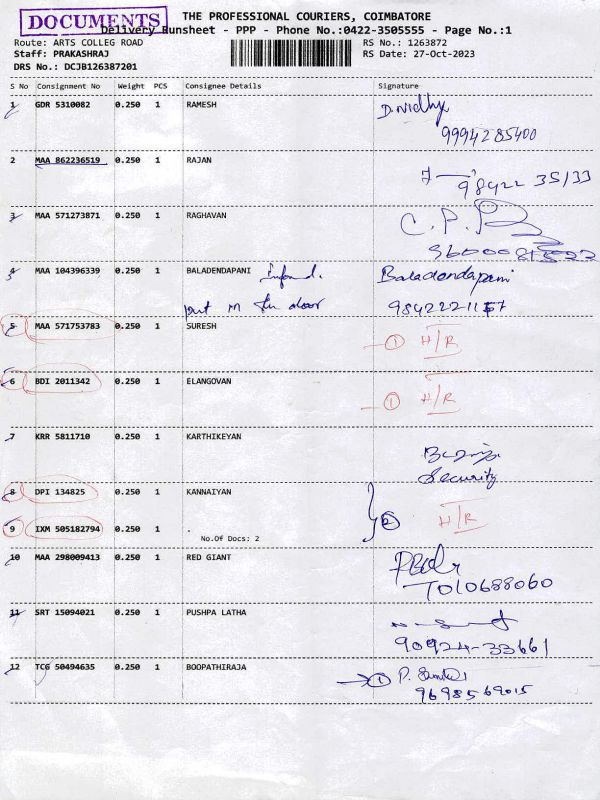 DOCUMENTS
THE PROFESSIONAL COURIERS, COIMBATORE
Delivery Runsheet - PPP - Phone No.:0422-3505555 - Page No.:1
Route: ARTS COLLEG ROAD RS No.: 1263872
Staff: PRAKASHRAJ RS Date: 27-Oct-2023
DRS No.: DCJB126387201
S No Consignment No Weight PCS Consignee Details Signature
1 GDR 5310082 0.250 1 RAMESH D.Nidhya
9994285400
2 MAA 862236519 0.250 1 RAJAN
98422 35133
3 MAA 571273871 0.250 1 RAGHAVAN C.P.
4 MAA 104396339 0.250 1 BALADENDAPANI Baladendapani
put in the door
5 MAA 571753783 0.250 1 SURESH 1 H/R
6 BDI 2011342 0.250 1 ELANGOVAN 1 H/R
7 KRR 5811710 0.250 1 KARTHIKEYAN
Security
8 DPI 134825 0.250 1 KANNAIYAN
H/R
9 IXM 505182794 0.250 1 .
No.Of Docs: 2
10 MAA 298009413 0.250 1 RED GIANT
7010688060
11 SRT 15094021 0.250 1 PUSHPA LATHA
90924-33661
12 TCG 50494635 0.250 1 BOOPATHIRAJA 1
9698569015